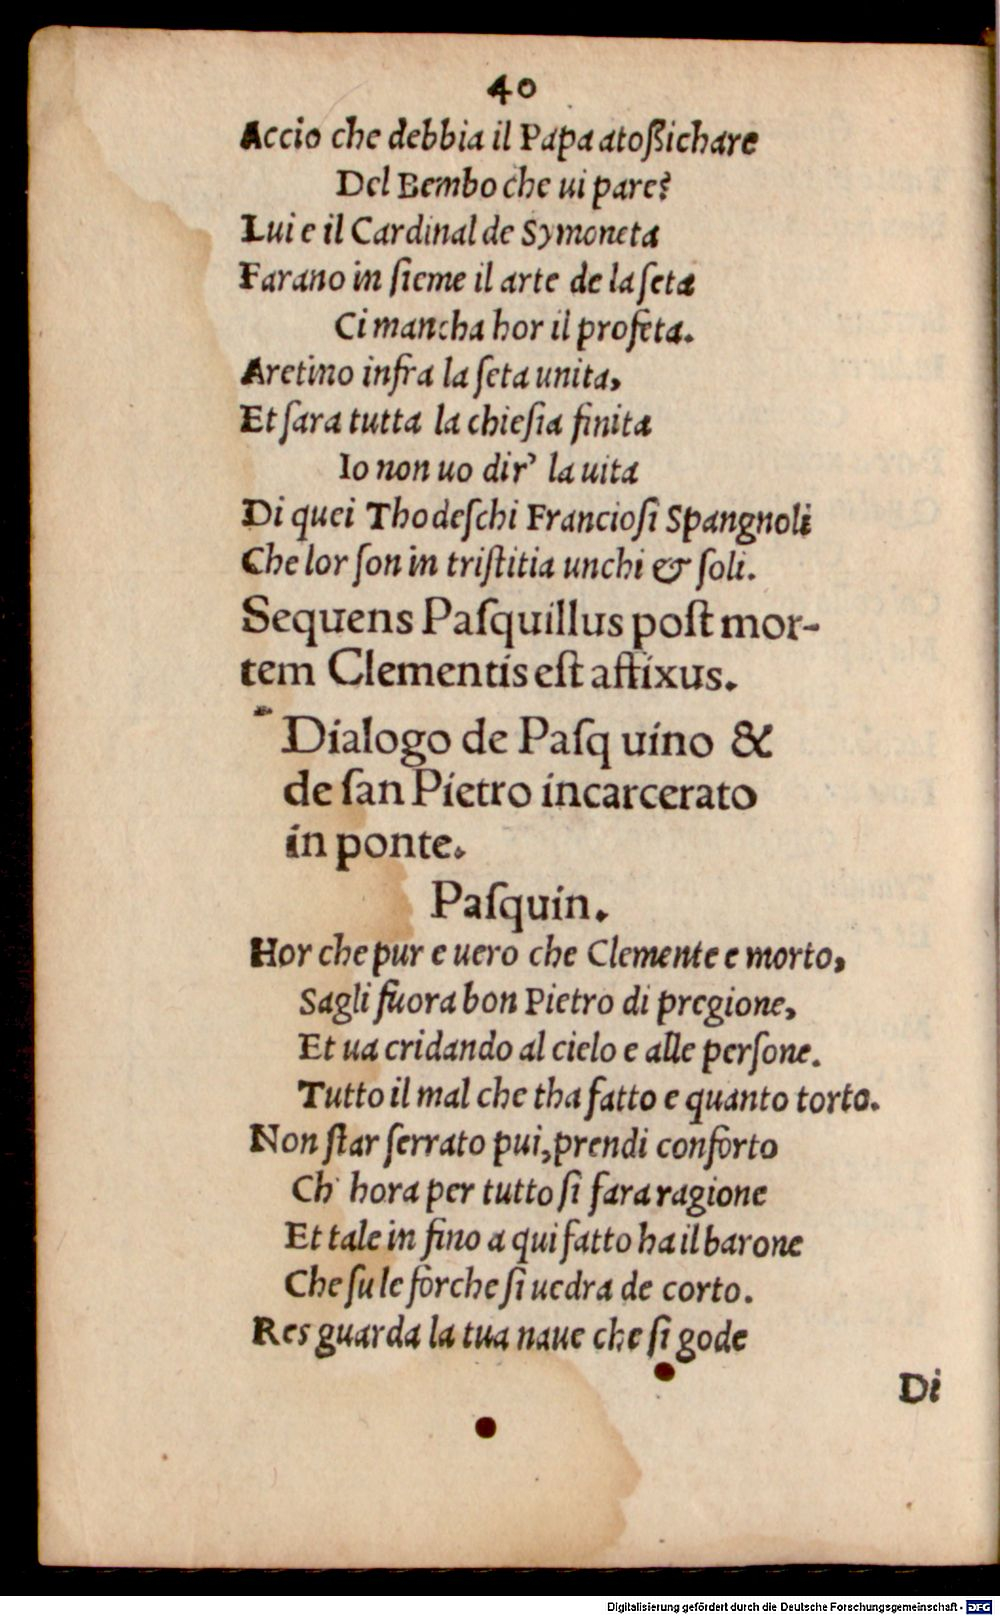 40
Accio che debbia il Papa atoßichare
Del Bembo che ui pare?
Lui e il Cardinal de Symoneta
Farano in ſieme il arte de la ſeta
Ci mancha hor il profeta.
Aretino infra la ſeta unita,
Et ſara tutta la chieſia finita
Io non uo dir' la uita
Di quei Thodeſchi Francioſi Spangnoli
Che lor ſon in triſtitia unchi & ſoli.
Sequens Paſquillus poſt mor-
tem Clementis eſt affixus.
Dialogo de Paſq uino &
de ſan Pietro incarcerato
in ponte.
Paſquin.
Hor che pur e uero che Clemente e morto,
Sagli fuora bon Pietro di pregione,
Et ua cridando al cielo e alle perſone.
Tutto il mal che tha fatto e quanto torto.
Non ſtar ſerrato pui, prendi conforto
Ch' hora per tutto ſi fara ragione
Et tale in fino a qui fatto ha il barone
Che ſu le forche ſi uedra de corto.
Res guarda la tua naue che ſi gode
Di
Digitalisierung gefördert durch die Deutsche Forschungsgemeinschaft - DFG